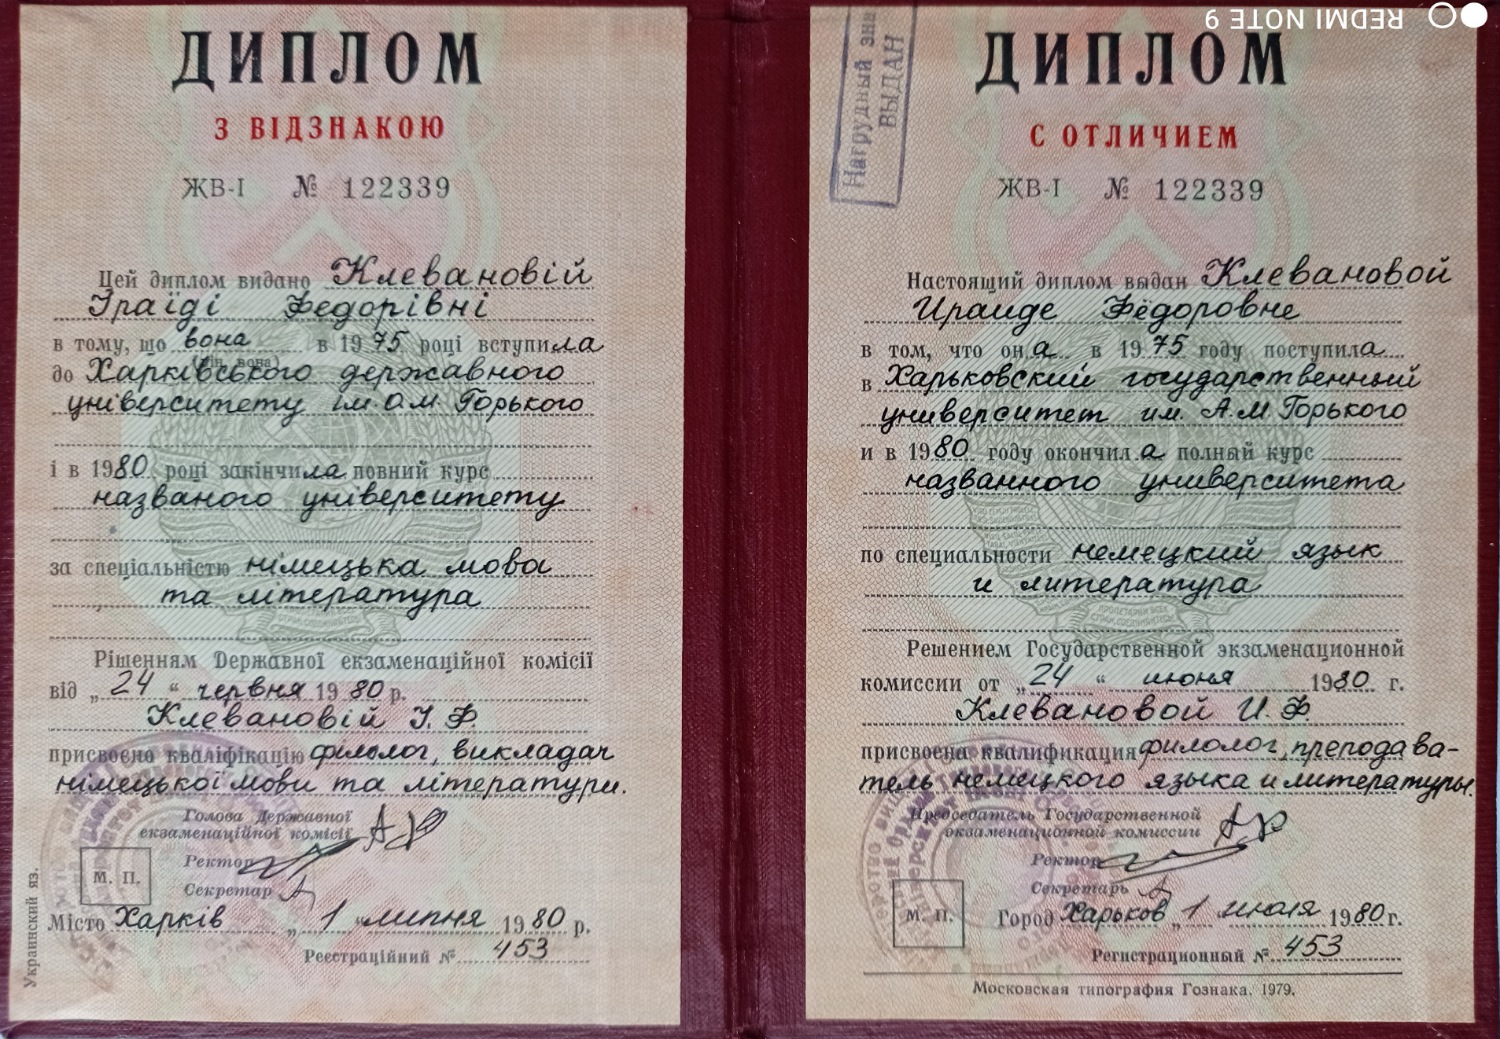 ДИПЛОМ
З ВІДЗНАКОЮ
ЖВ-І № 122339
Цей диплом видано Клевановій
Іраїді Федорівні
в тому, що вона в 1975 році вступила
(він, вона)
до Харківського державного
університету ім О.М. Горького
і в 1980 році закінчила повний курс
названого університету
за спеціальністю німецька мова
та література
Рішенням Державної екзаменаційної комісії
від „24“ червня 1980 р.
Клевановій І. Ф.
присвоєно кваліфікацію філолог, викладач
німецької мови та літератури.
Голова Державної
екзаменаційної комісії
Ректор
Секретар
М. П.
Місто Харків „1“ липня 1980 р.
Реєстраційний № 453
Украинский яз.
REDMI NOTE 9
Нагрудный зна
ВЫДАН
ДИПЛОМ
С ОТЛИЧИЕМ
ЖВ-І № 122339
Настоящий диплом выдан Клевановой
Ираиде Фёдоровне
в том, что она в 1975 году поступила
в Харьковский государственный
университет им. А.М Горького
и в 1980 году окончила полный курс
названного университета
по специальности немецкий язык
и литература
Решением Государственной экзаменационной
комиссии от „24“ июня 1980 г.
Клевановой И. Ф.
присвоена квалификация филолог, преподава-
тель немецкого языка и литературы.
Председатель Государственной
экзаменационной комиссии
Ректор
Секретарь
М. П.
Город Харьков „1 июля 1980 г.
Регистрационный № 453
Московская типография Гознака. 1979.